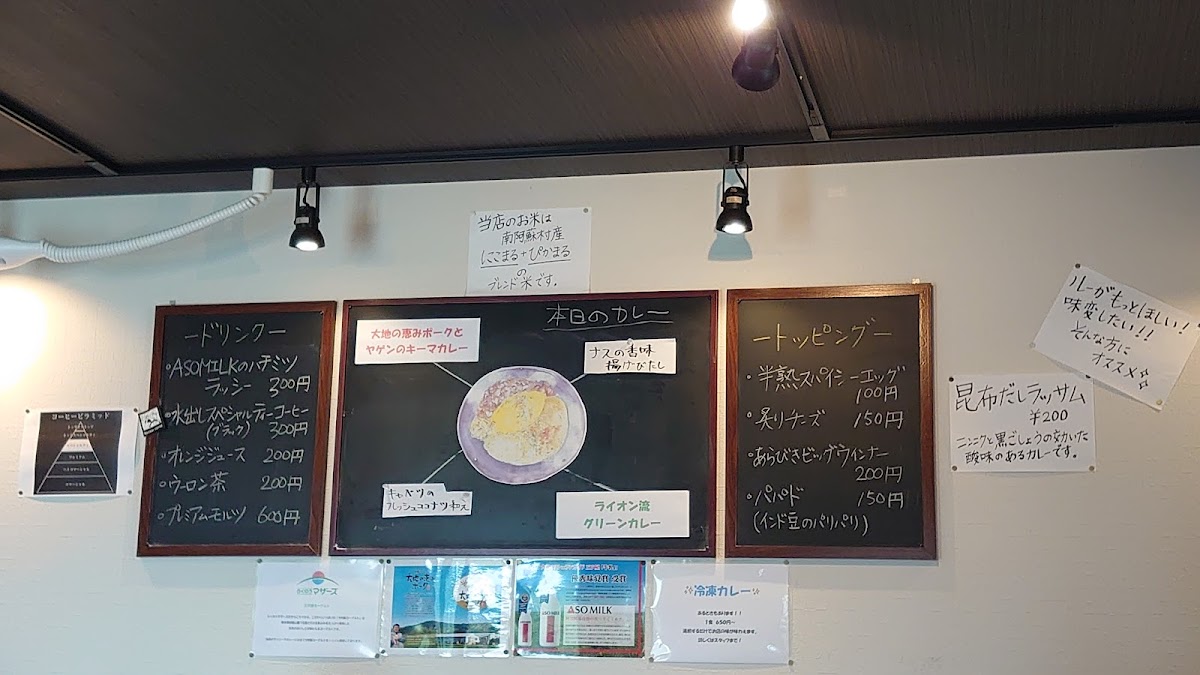 当店のお米は
南阿蘇村産
にこまる+ぴかまる
の
ブレンド米です。
ードリンクー
・ASOMILKのハチミツ
ラッシー 300円
・水出しスペシャルティーコーヒー
(ブラック) 300円
・オレンジジュース 200円
・ウーロン茶 200円
・プレミアムモルツ 600円
本日のカレー
大地の恵みポークと
ヤゲンのキーマカレー
ナスの香味
揚げびたし
キャベツの
フレッシュココナツ和え
ライオン流
グリーンカレー
ートッピングー
・半熟スパイシーエッグ
100円
・炙りチーズ 150円
・あらびきビッグウィンナー
200円
・パパド 150円
(インド豆のパリパリ)
ルーがもっとほしい!
味変したい!!
そんな方に
オススメ
昆布だしラッサム
¥200
ニンニクと黒こしょうの効いた
酸味のあるカレーです。
コーヒーピラミッド
マザーズ
ASO MILK
冷凍カレー
おるときもあります!!
1食 650円~
詳しくはスタッフまで!